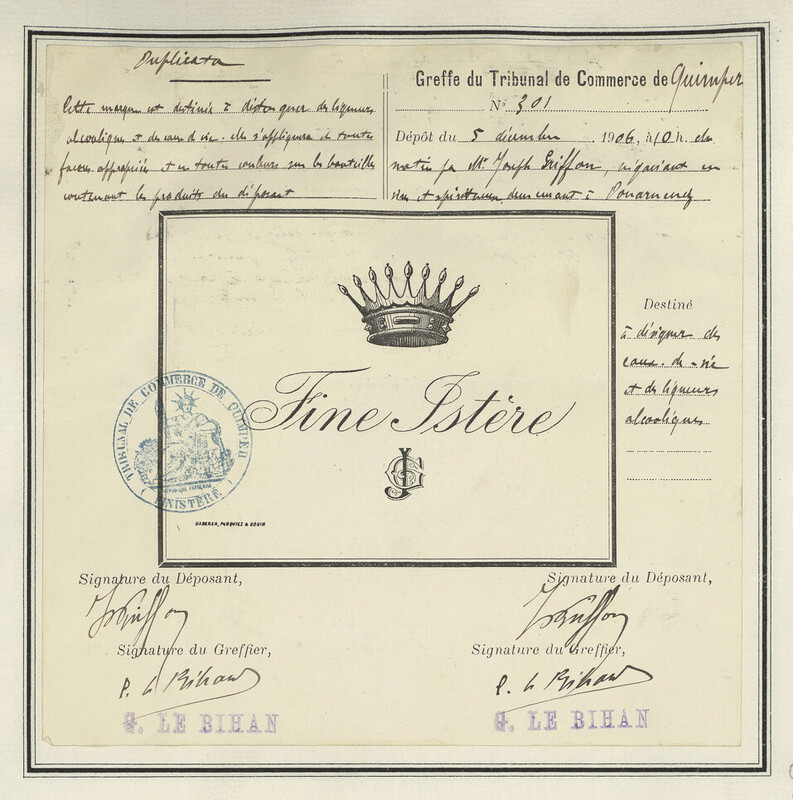 Duplicata
Cette marque est destinée à distinguer des liqueurs
alcooliques et des eaux de vie. elle s'appliquera de toute
façon appropriée et en toute couleurs sur les bouteilles
contenant les produits du déposant
Greffe du Tribunal de Commerce de Quimper
N° 301
Dépôt du 5 décembre 1906, à 10 h. du
matin par Mr Joseph Griffon, négociant en
vins et spiritueux demeurant à Douarnenez
Destiné
à désigner des
eaux-de-vie
et des liqueurs
alcooliques
Fine Istère
JG
TRIBUNAL DE COMMERCE DE QUIMPER
RÉPUBLIQUE FRANÇAISE
(FINISTÈRE)
Signature du Déposant,
Signature du Déposant,
JGriffon
JGriffon
Signature du Greffier,
Signature du Greffier,
P. Le Bihan
P. Le Bihan
G. LE BIHAN
G. LE BIHAN